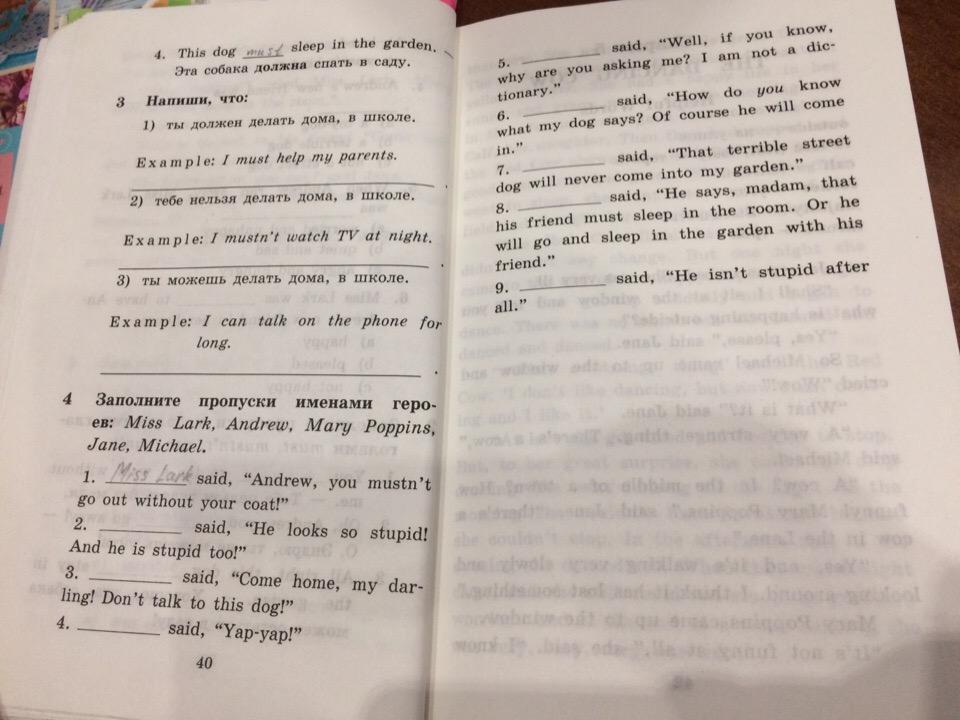 4. This dog must sleep in the garden.
Эта собака должна спать в саду.
3 Напиши, что:
1) ты должен делать дома, в школе.
Example: I must help my parents.
2) тебе нельзя делать дома, в школе.
Example: I mustn't watch TV at night.
3) ты можешь делать дома, в школе.
Example: I can talk on the phone for
long.
4 Заполните пропуски именами геро-
ев: Miss Lark, Andrew, Mary Poppins,
Jane, Michael.
1. Miss Lark said, “Andrew, you mustn't
go out without your coat!”
2. ________ said, “He looks so stupid!
And he is stupid too!”
3. ________ said, “Come home, my dar-
ling! Don't talk to this dog!”
4. ________ said, “Yap-yap!”
40
5. ________ said, “Well, if you know,
why are you asking me? I am not a dic-
tionary.”
6. ________ said, “How do you know
what my dog says? Of course he will come
in.”
7. ________ said, “That terrible street
dog will never come into my garden.”
8. ________ said, “He says, madam, that
his friend must sleep in the room. Or he
will go and sleep in the garden with his
friend.”
9. ________ said, “He isn't stupid after
all.”